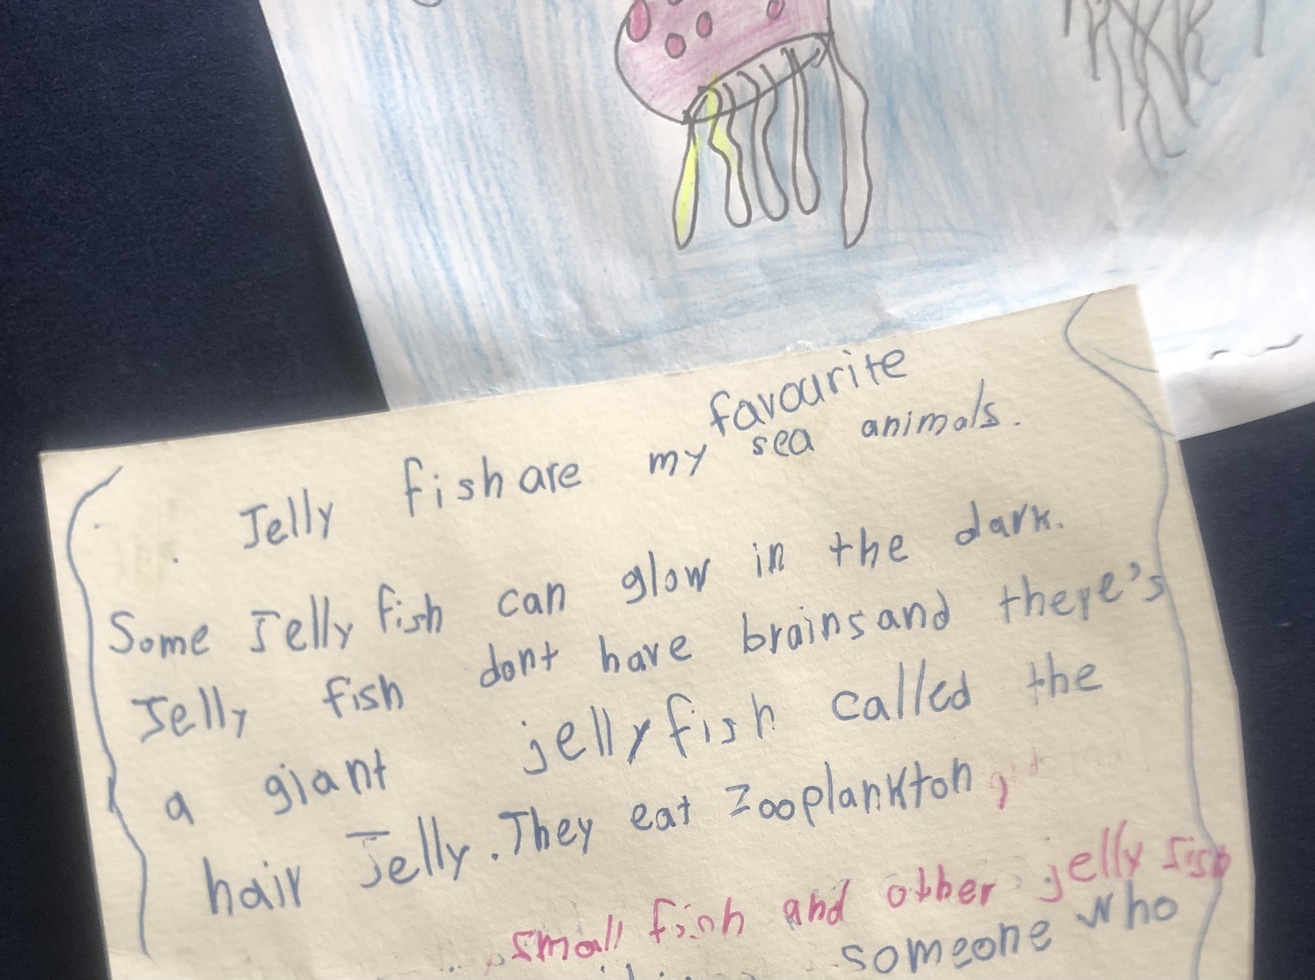 Jelly fish are my favourite sea animals.
Some Jelly fish can glow in the dark.
Jelly fish dont have brains and there's
a giant jellyfish called the
hair Jelly. They eat Zooplankton,
small fish and other jelly fish
someone who